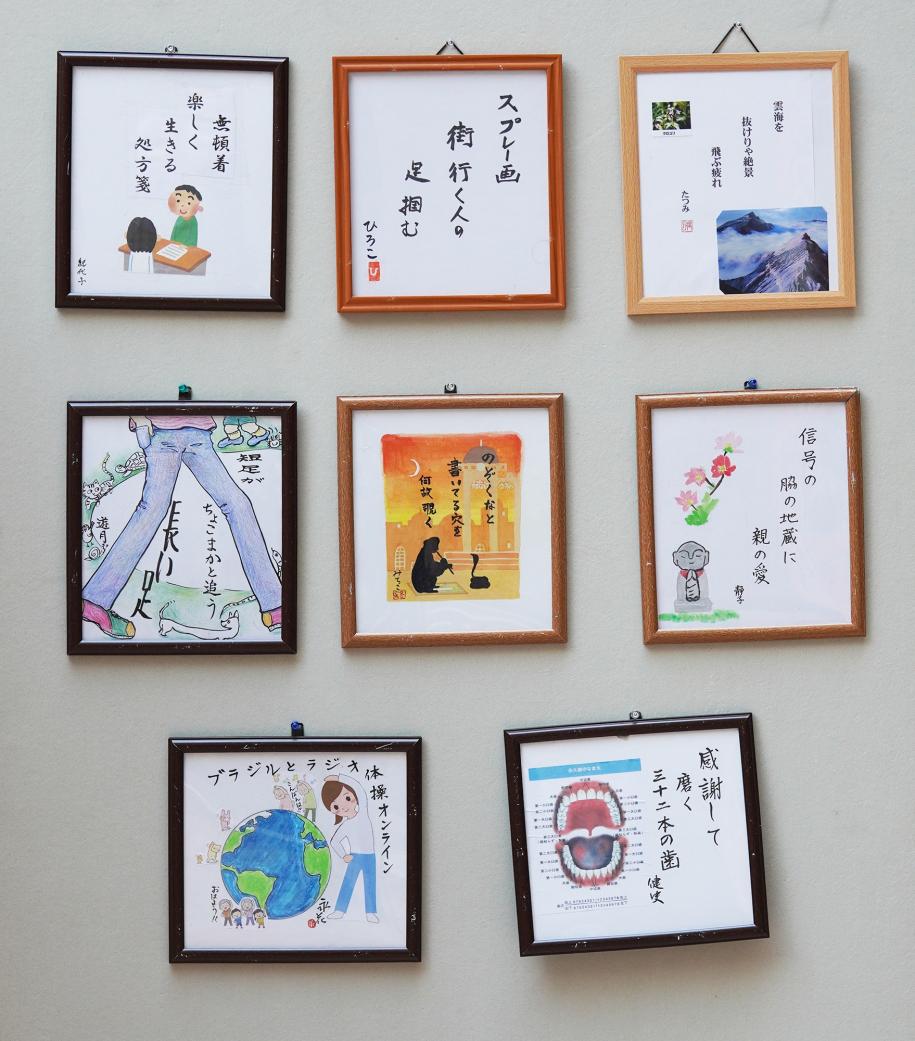 無頓着
楽しく
生きる
処方箋
紀代子
スプレー画
街行く人の
足掴む
ひろこ
雲海を
抜けりゃ絶景
飛ぶ疲れ
たつみ
短足が
ちょこまかと追う
長い足
遊月
のぞくなと
書いてる穴を
何故覗く
みちこ
信号の
脇の地蔵に
親の愛
靜子
ブラジルとラジオ体操オンライン
こんばんは
おはよう!!
感謝して
磨く
三十二本の歯
健史
永久歯のなまえ